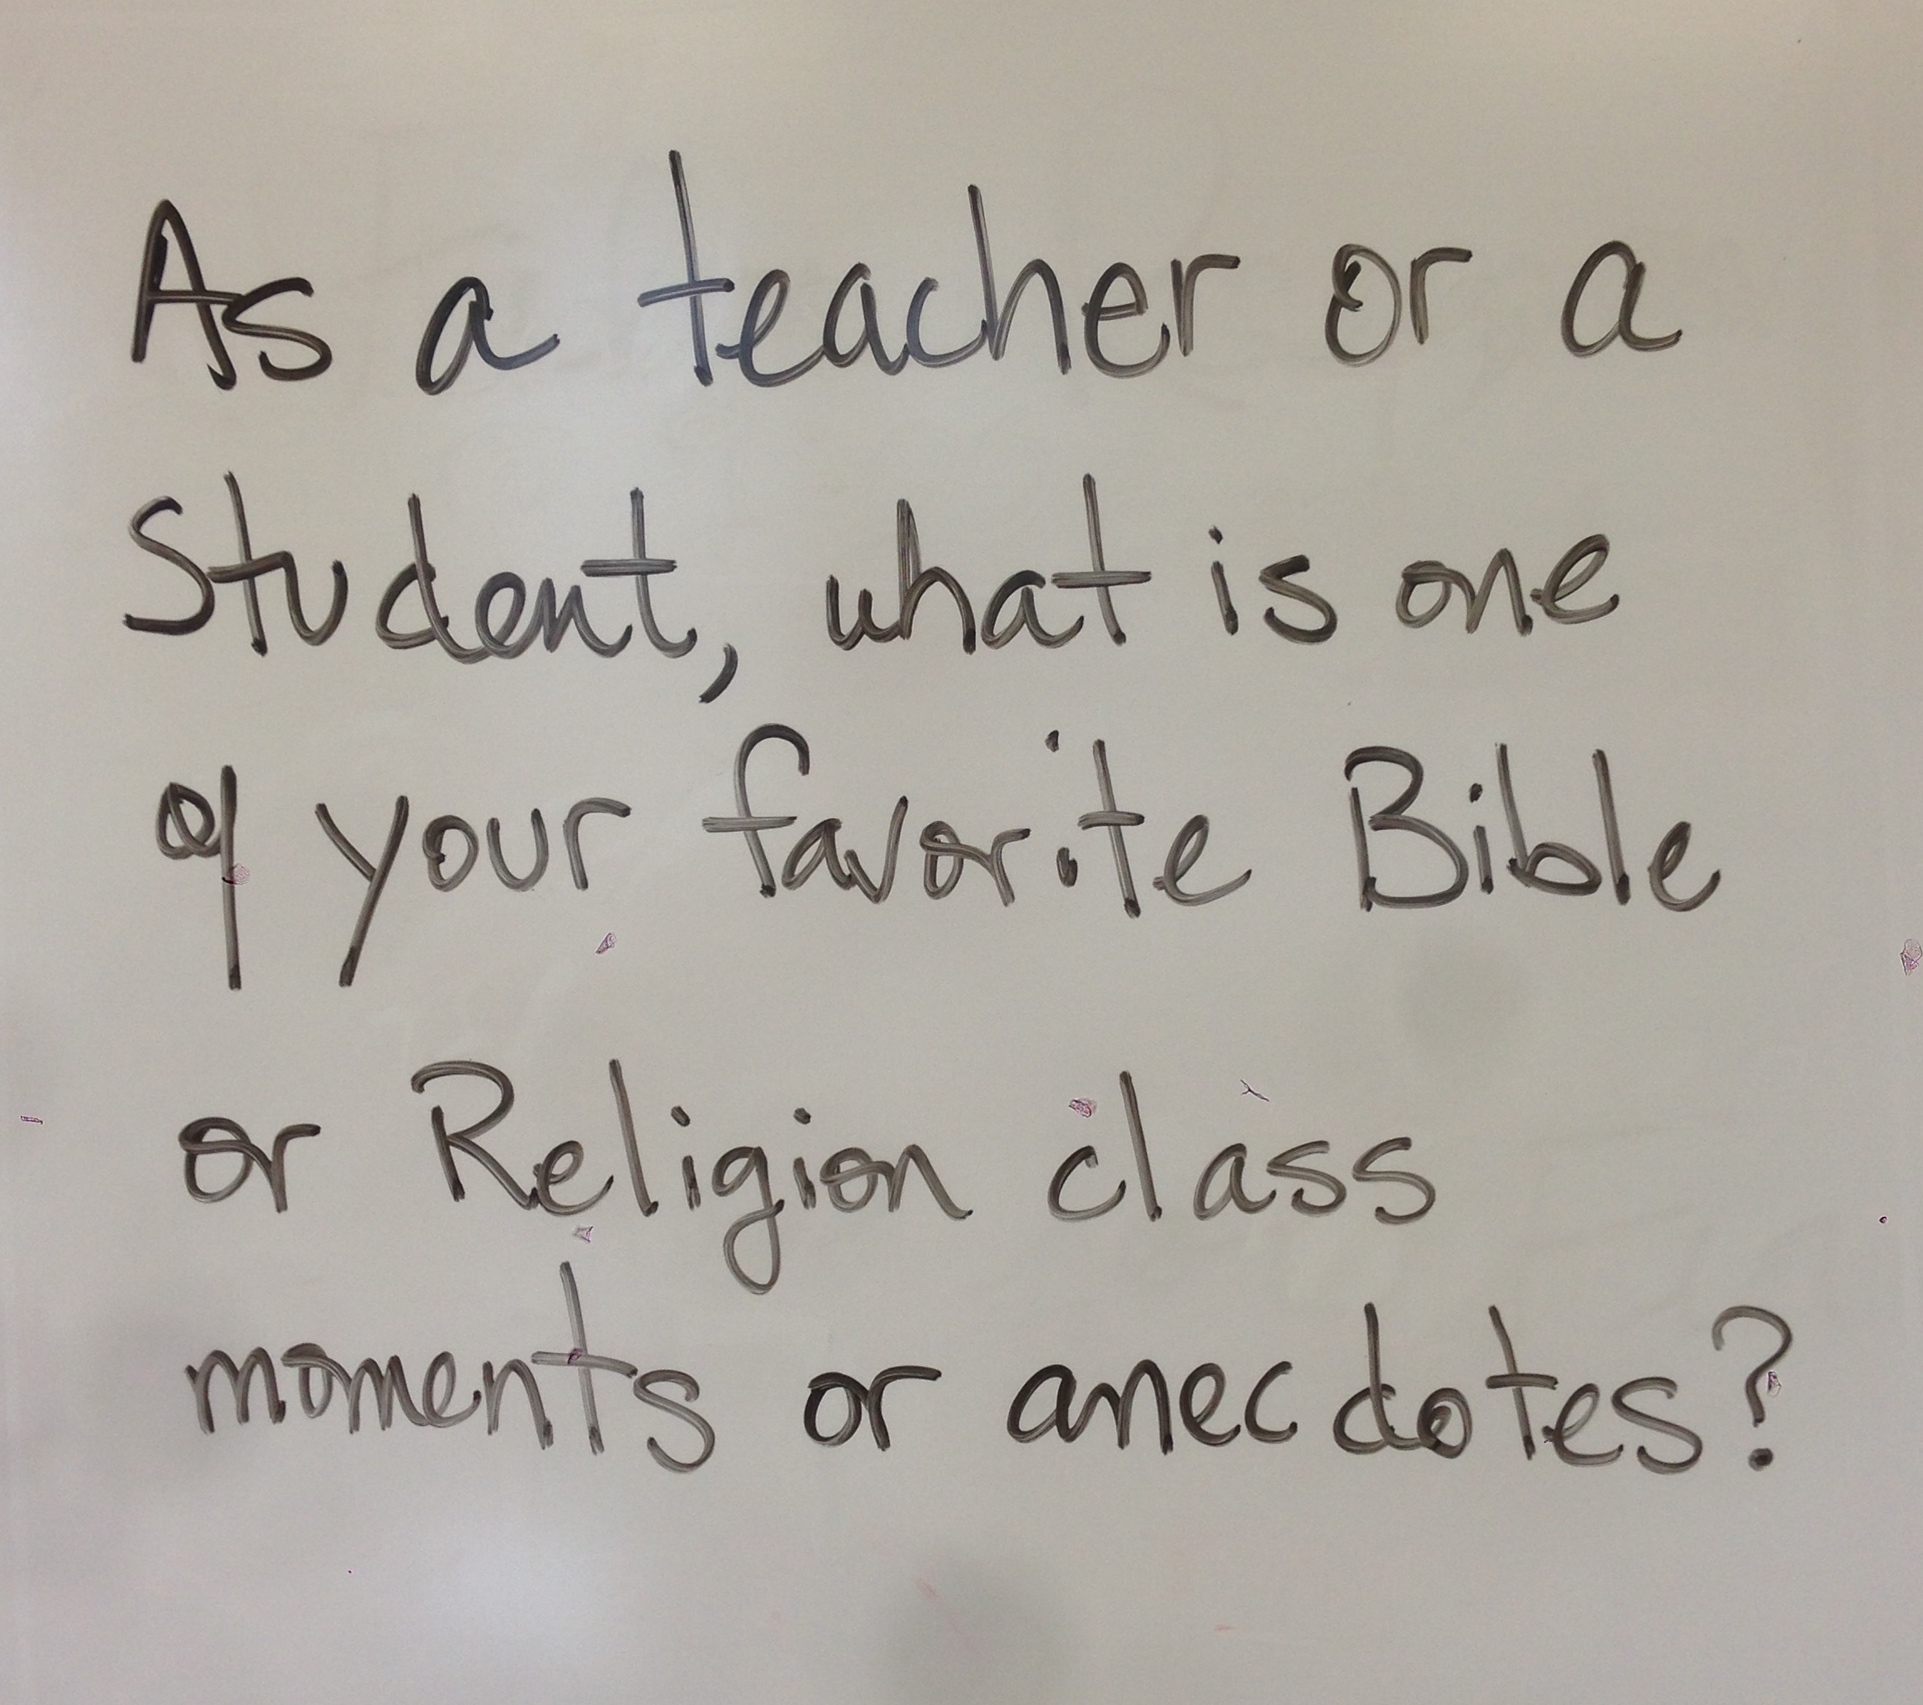 As a teacher or a
Student, what is one
of your favorite Bible
or Religion class
moments or anecdotes?